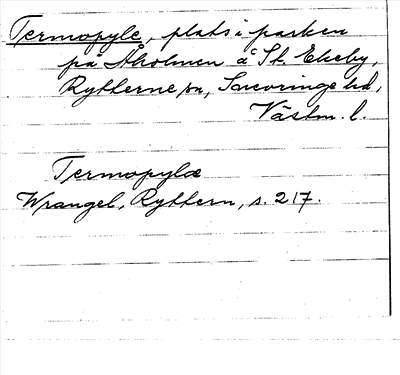 Termopyle, plats i parken
på Åholmen å St. Ekeby,
Rytterne sn, Snevringe hd,
Västm. l.
Termopylæ
Wrangel, Ryttern, s. 217.